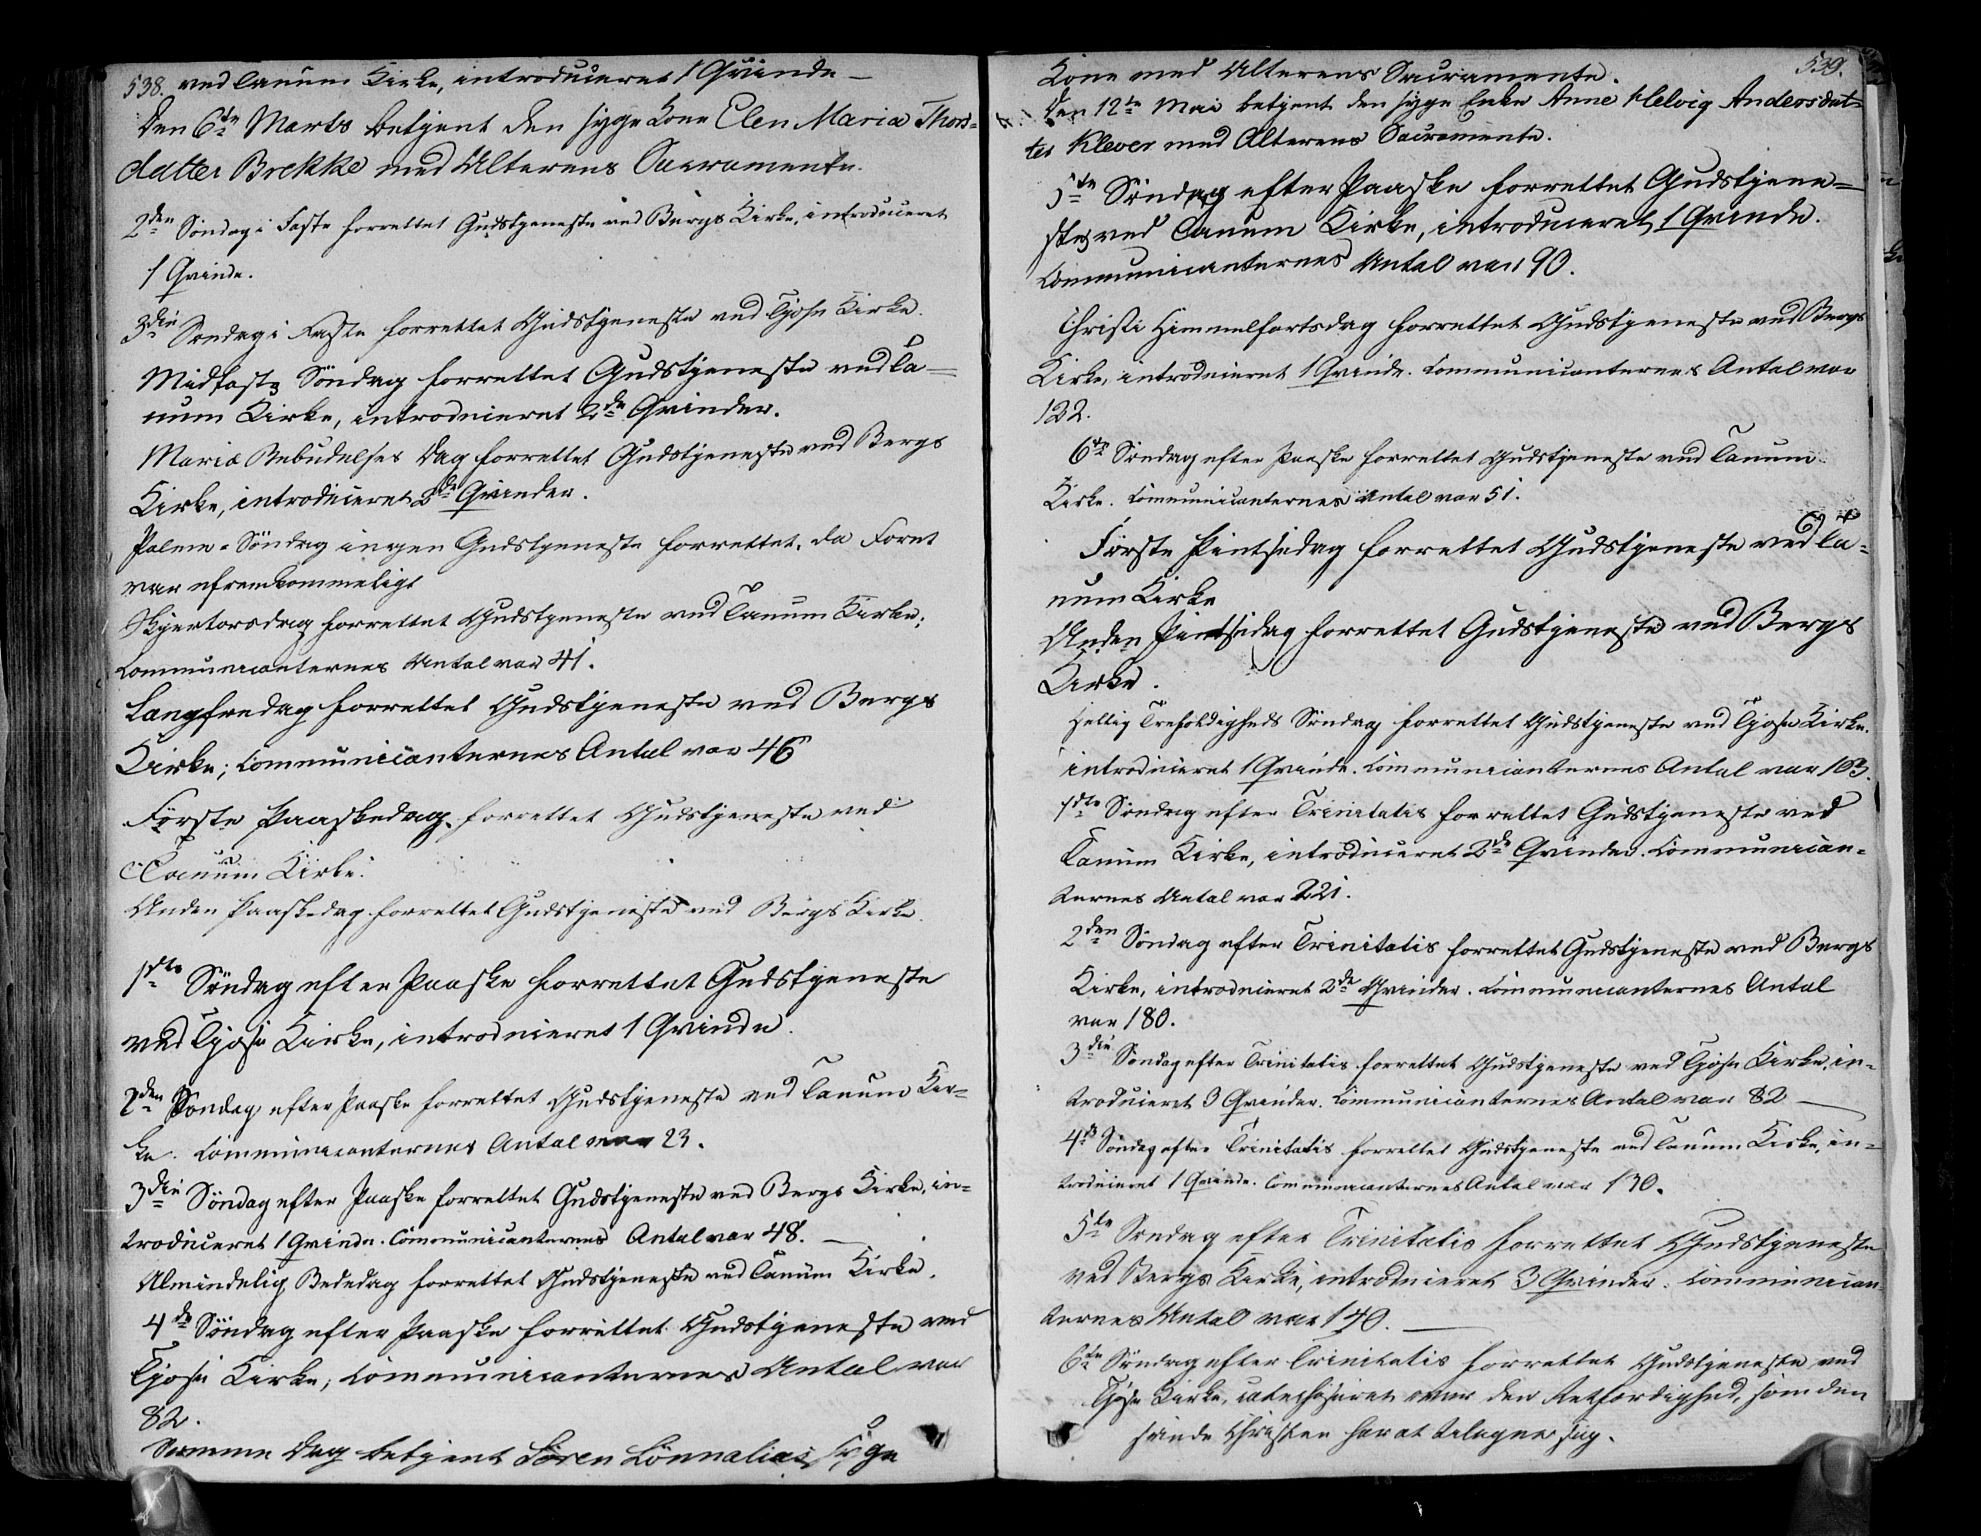 538. ved Tanum Kirke, introduceret 1 Qvinde —
Den 6te Marts betjent den syge Kone Elen Maria Thors-
datter Brekke med Alterens Sacramente.
2den Söndag i Faste forrettet Gudstjeneste ved Bergs Kirke, introduceret
1 Qvinde.
3die Söndag i Faste forrettet Gudstjeneste ved Tjose Kirke.
Midfaste Söndag forrettet Gudstjeneste ved Ta-
num Kirke, introduceret 2de Qvinder.
Mariæ Bebudelses Dag forrettet Gudstjeneste ved Bergs
Kirke, introduceret 2de Qvinder.
Palme-Söndag ingen Gudstjeneste forrettet, da Foret
var ufremkommeligt
Skjertorsdag forrettet Gudstjeneste ved Tanum Kirke;
Communicanternes Antal var 41.
Langfredag forrettet Gudstjeneste ved Bergs
Kirke; Communicanternes Antal var 46
Förste Paaskedag forrettet Gudstjeneste ved
Tanum Kirke.
Anden Paaskedag forrettet Gudstjeneste ved Bergs Kirke.
1ste Söndag efter Paaske forrettet Gudstjeneste
ved Tjose Kirke, introduceret 1 Qvinde.
2den Söndag efter Paaske forrettet Gudstjeneste ved Tanum Kir-
ke. Communicanternes Antal var 23.
3die Söndag efter Paaske forrettet Gudstjeneste ved Bergs Kirke, in-
troduceret 1 Qvinde. Communicanternes Antal var 48. —
Almindelig Bededag forrettet Gudstjeneste ved Tanum Kirke.
4de Söndag efter Paaske forrettet Gudstjeneste ved
Tjose Kirke, Communicanternes Antal var
82.
Samme Dag betjent Sören Lönnalias syge
539.
Kone med Alterens Sacramente.
Den 12te Mai betjent den syge Enke Anne Helvig Andersdat-
ter Klever med Alterens Sacramente.
5te Söndag efter Paaske forrettet Gudstjene-
ste ved Tanum Kirke, introduceret 1 Qvinde.
Communicanternes Antal var 90.
Christi Himmelfartsdag forrettet Gudstjeneste ved Bergs
Kirke, introduceret 1 Qvinde. Communicanternes Antal var
122.
6te Söndag efter Paaske forrettet Gudstjeneste ved Tanum
Kirke. Communicanternes Antal var 51.
Förste Pintsedag forrettet Gudstjeneste ved Ta-
num Kirke
Anden Pintsedag forrettet Gudstjeneste ved Bergs
Kirke.
Hellig Trefoldigheds Söndag forrettet Gudstjeneste ved Tjose Kirke.
introduceret 1 Qvinde. Communicanternes Antal var 103.
1ste Söndag efter Trinitatis forrettet Gudstjeneste ved
Tanum Kirke, introduceret 2de Qvinder. Communican-
ternes Antal var 221.
2den Söndag efter Trinitatis forrettet Gudstjeneste ved Bergs
Kirke, introduceret 2de Qvinder. Communicanternes Antal
var 180.
3die Söndag efter Trinitatis forrettet Gudstjeneste ved Tjose Kirke, in-
troduceret 3 Qvinder. Communicanternes Antal var 82 —
4de Söndag efter Trinitatis forrettet Gudstjeneste ved Tanum Kirke, in-
troduceret 1 Qvinde. Communicanternes Antal var 130.
5te Söndag efter Trinitatis forrettet Gudstjeneste
ved Bergs Kirke, introduceret 3 Qvinder. Communican
ternes Antal var 140. —
6te Söndag efter Trinitatis forrettet Gudstjeneste ved
Tjose Kirke, catechiseret over den Retfærdighed, som den
sande Christen har at tilegne sig.